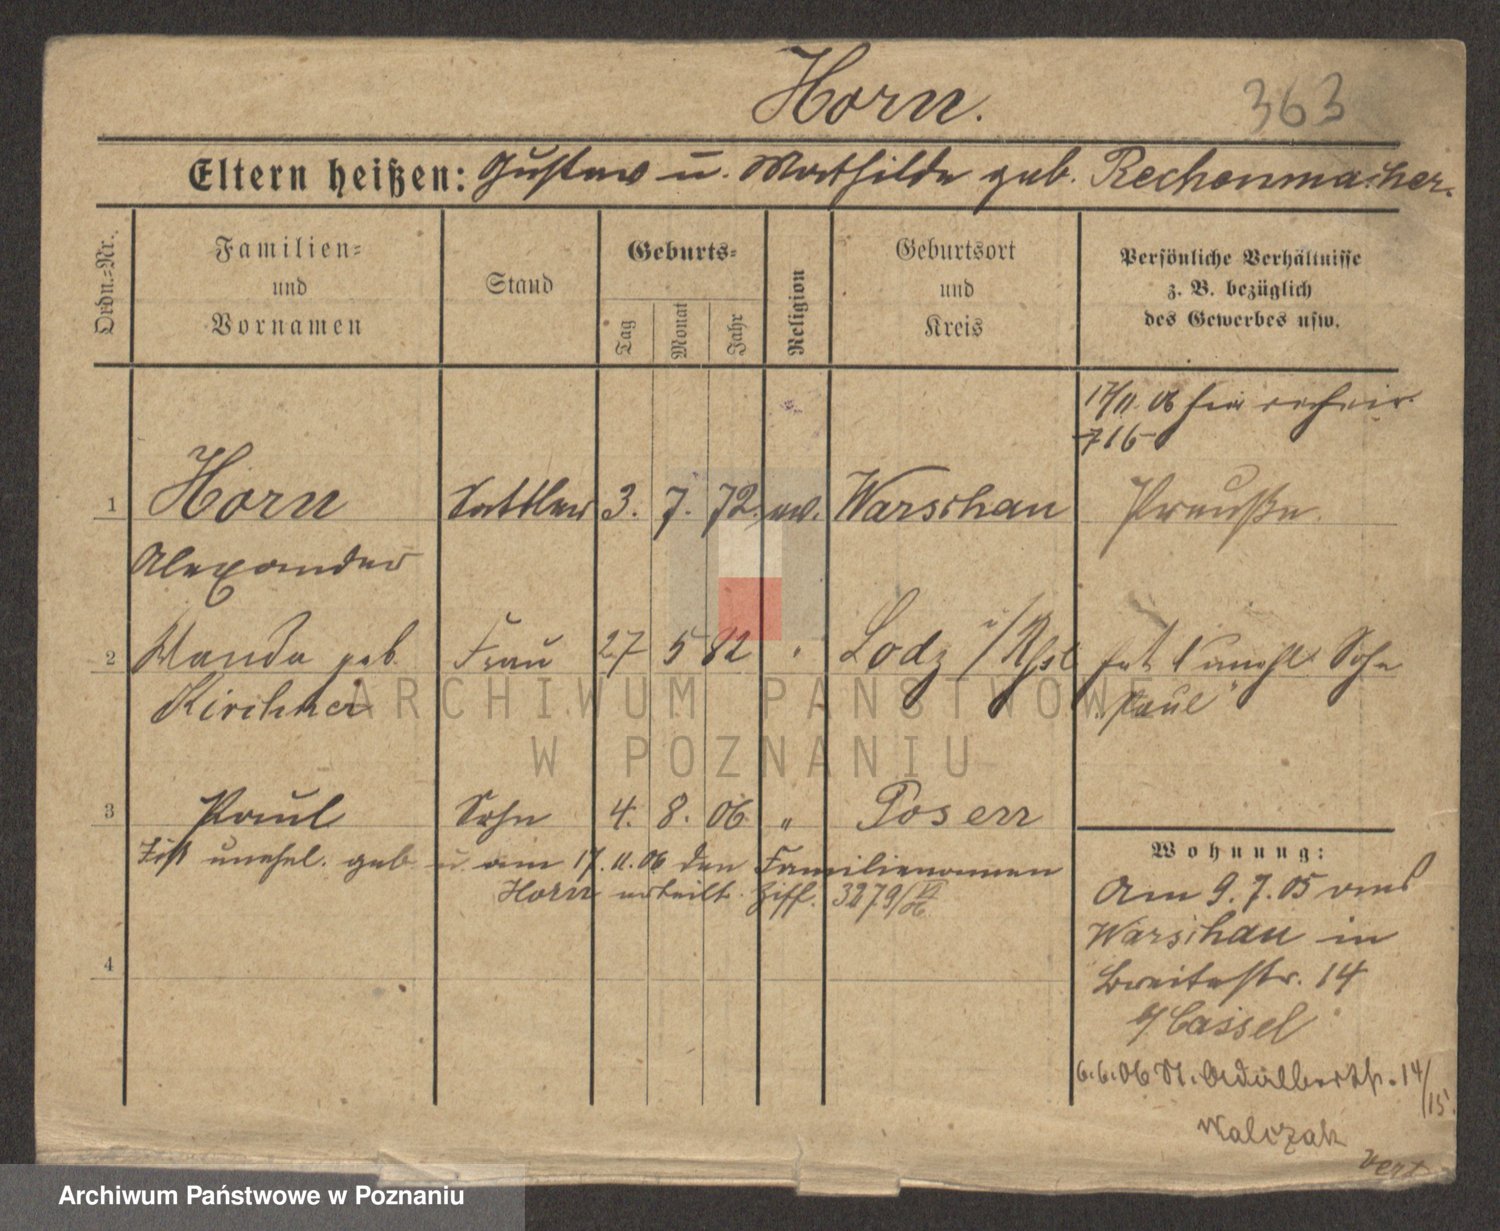 Horn.
363
Eltern heißen: Gustav u. Mathilde geb. Rechenmacher.
Ordn.-Nr.
Familien-
und
Vornamen
Stand
Geburts-
Tag
Monat
Jahr
Religion
Geburtsort
und
Kreis
Persönliche Verhältnisse
z. B. bezüglich
des Gewerbes usw.
17/11. 06
716
1 Horn Sattler 3. 7. 72. ev. Warschau Preuße.
Alexander
2 Wanda geb. Frau 27 5 82 " Lodz i/Rßl hat 1 unehl Sohn
Kirchner "Paul"
3 Paul Sohn 4. 8. 06. " Posen
Ist unehel. geb. u. am 17. 11. 06 den Familiennamen
Horn erteilt. Ziff. 3279/VI 06
4
Wohnung:
Am 9. 7. 05 aus
Warschau in
Breitestr. 14
b/ Cassel
6.6.06 St. Adalbertstr. 14/15.
Walczak
Vert
ARCHIWUM PAŃSTWOWE
W POZNANIU
Archiwum Państwowe w Poznaniu